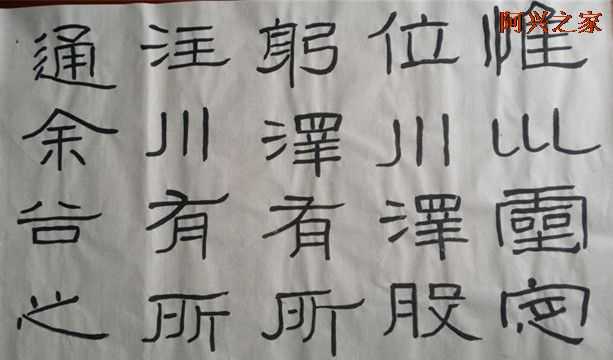 阿兴之家
惟巛靈定
位川澤股
躬澤有所
注川有所
通余谷之